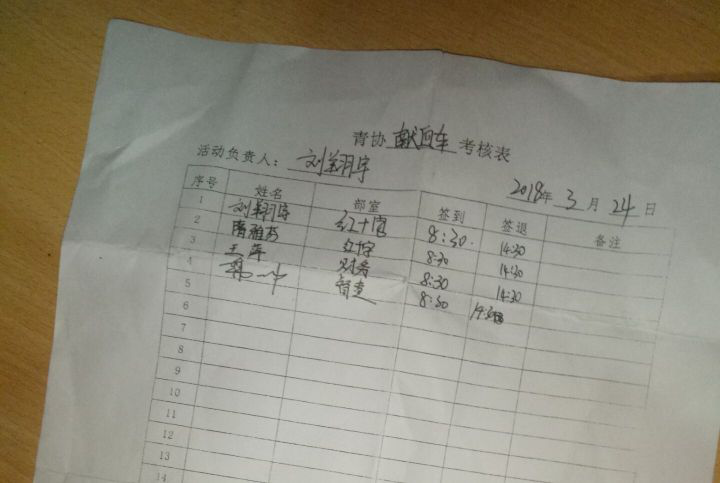 青协 献血车 考核表
活动负责人： 刘翔宇
2018年 3 月 24 日
序号 姓名 部室 签到 签退 备注
1 刘翔宇 红十字 8:30 14:30
2 隋雅芬 红十字 8:30 14:30
3 王萍 财务 8:30 14:30
4 督查 8:30
5
6
7
8
9
10
11
12
13
14